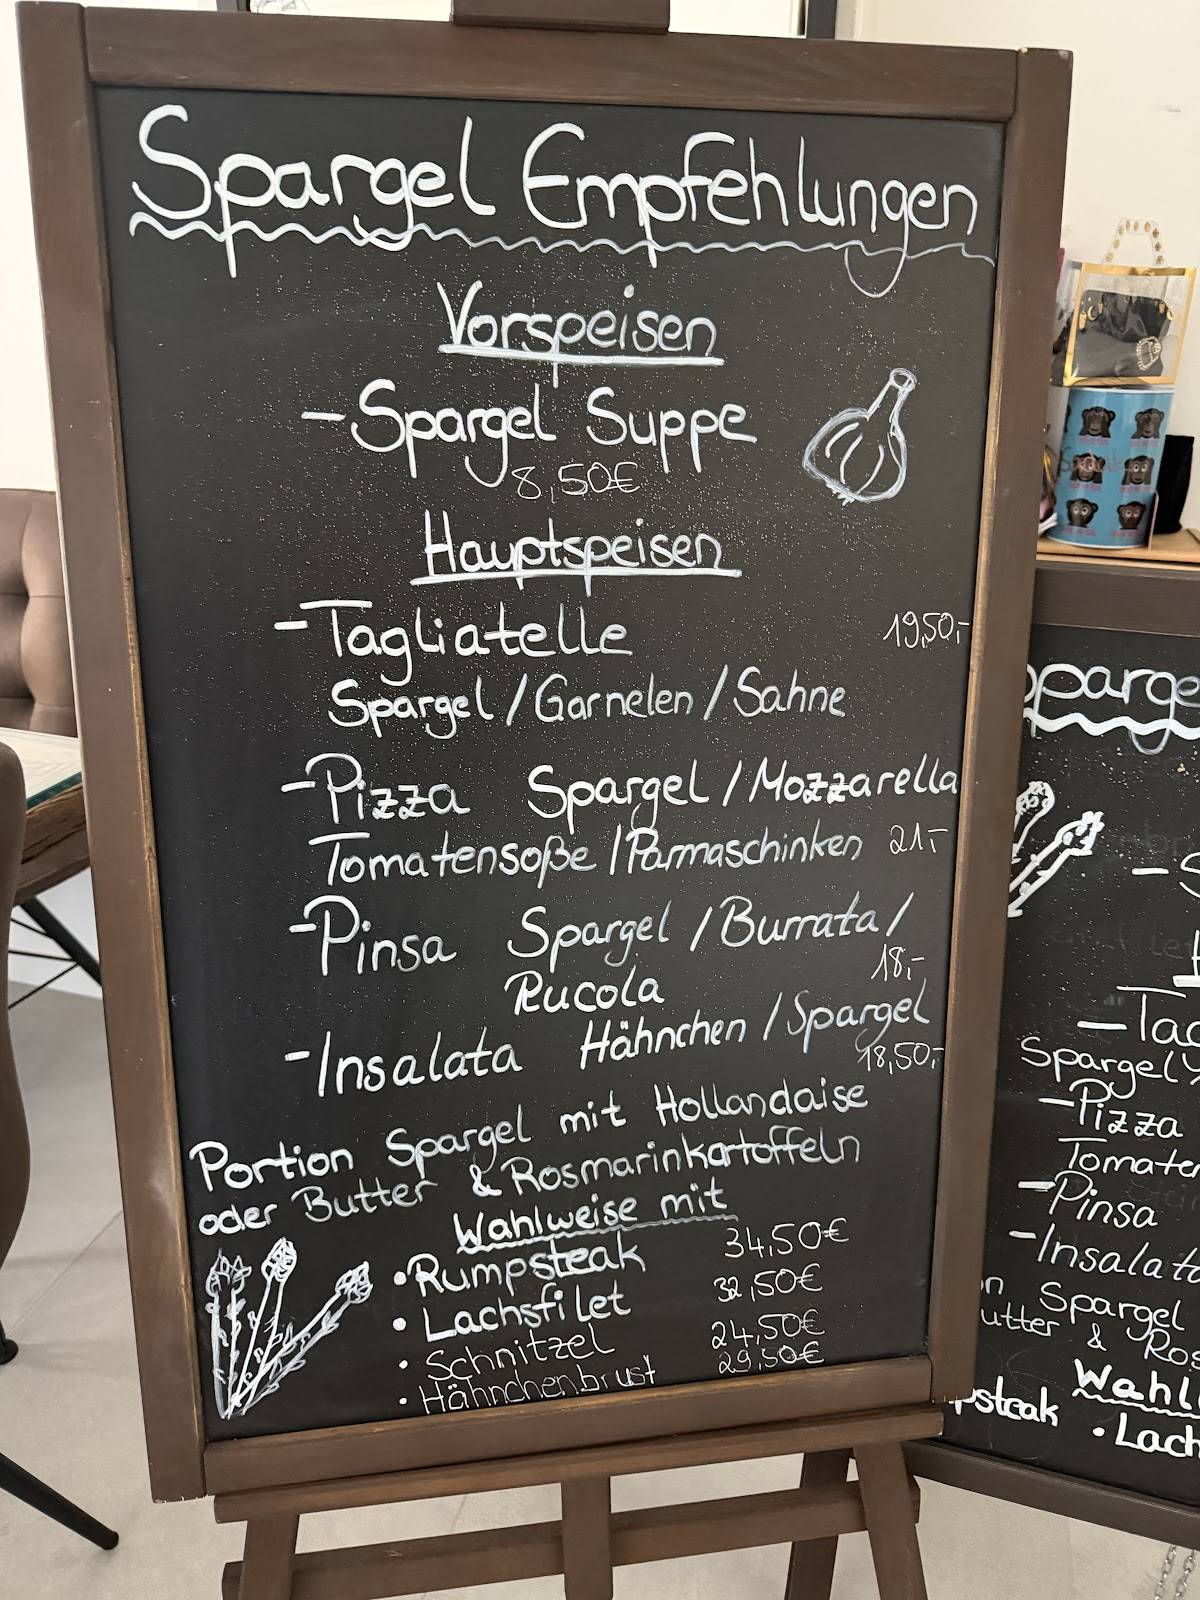 Spargel Empfehlungen
Vorspeisen
- Spargel Suppe
8,50€
Hauptspeisen
- Tagliatelle 19,50,-
Spargel / Garnelen / Sahne
- Pizza Spargel / Mozzarella
Tomatensoße / Parmaschinken 21,-
- Pinsa Spargel / Burrata /
Rucola 18,-
- Insalata Hähnchen / Spargel
18,50,-
Portion Spargel mit Hollandaise
oder Butter & Rosmarinkartoffeln
Wahlweise mit
• Rumpsteak 34,50€
• Lachsfilet 32,50€
• Schnitzel 24,50€
• Hähnchenbrust 29,50€
Sparge
- S
H
- Tag
Spargel /
- Pizza
Tomaten
- Pinsa
- Insalata
on Spargel
utter & Ros
Wahl
psteak • Lach